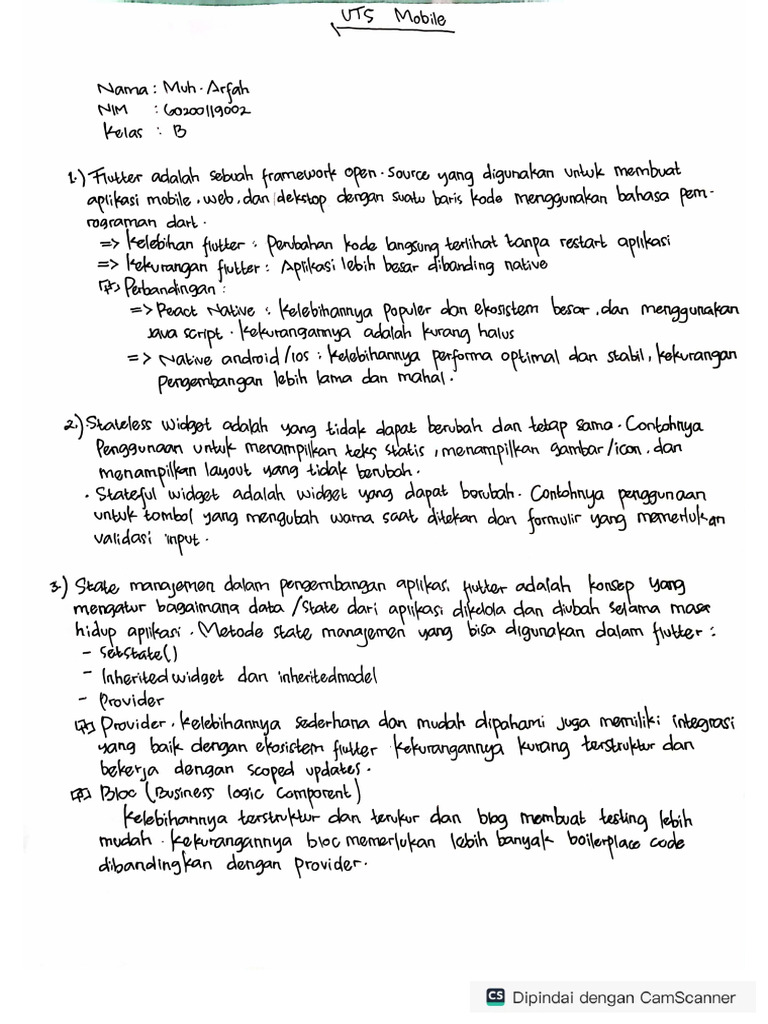 UTS Mobile
Nama : Muh. Arfah
NIM : 60200119002
Kelas : B
1.) Flutter adalah sebuah framework open-source yang digunakan untuk membuat
aplikasi mobile, web, dan dekstop dengan suatu baris kode menggunakan bahasa pem-
rograman dart.
=> Kelebihan flutter : Perubahan kode langsung terlihat tanpa restart aplikasi
=> Kekurangan flutter : Aplikasi lebih besar dibanding native
Perbandingan :
=> React Native : Kelebihannya populer dan ekosistem besar, dan menggunakan
Java script. Kekurangannya adalah kurang halus
=> Native android/ios : Kelebihannya performa optimal dan stabil, kekurangan
Pengembangan lebih lama dan mahal.
2.) Stateless widget adalah yang tidak dapat berubah dan tetap sama. Contohnya
Penggunaan untuk menampilkan teks statis, menampilkan gambar/icon, dan
menampilkan layout yang tidak berubah.
• Stateful widget adalah widget yang dapat berubah. Contohnya penggunaan
untuk tombol yang mengubah warna saat ditekan dan formulir yang memerlukan
validasi input.
3.) State manajemen dalam pengembangan aplikasi flutter adalah konsep yang
mengatur bagaimana data /State dari aplikasi dikelola dan diubah selama masa
hidup aplikasi. Metode state manajemen yang bisa digunakan dalam flutter :
- SetState()
- Inheritedwidget dan inheritedmodel
- Provider
Provider, kelebihannya sederhana dan mudah dipahami juga memiliki integrasi
yang baik dengan ekosistem flutter kekurangannya kurang terstruktur dan
bekerja dengan scoped updates.
Bloc (Business logic component)
Kelebihannya terstruktur dan terukur dan blog membuat testing lebih
mudah. Kekurangannya bloc memerlukan lebih banyak boilerplace code
dibandingkan dengan provider.
CS Dipindai dengan CamScanner